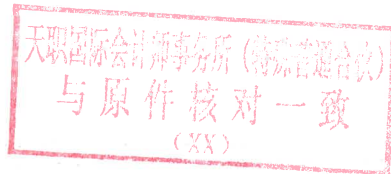 天职国际会计师事务所（特殊普通合伙）
与原件核对一致
（XX）